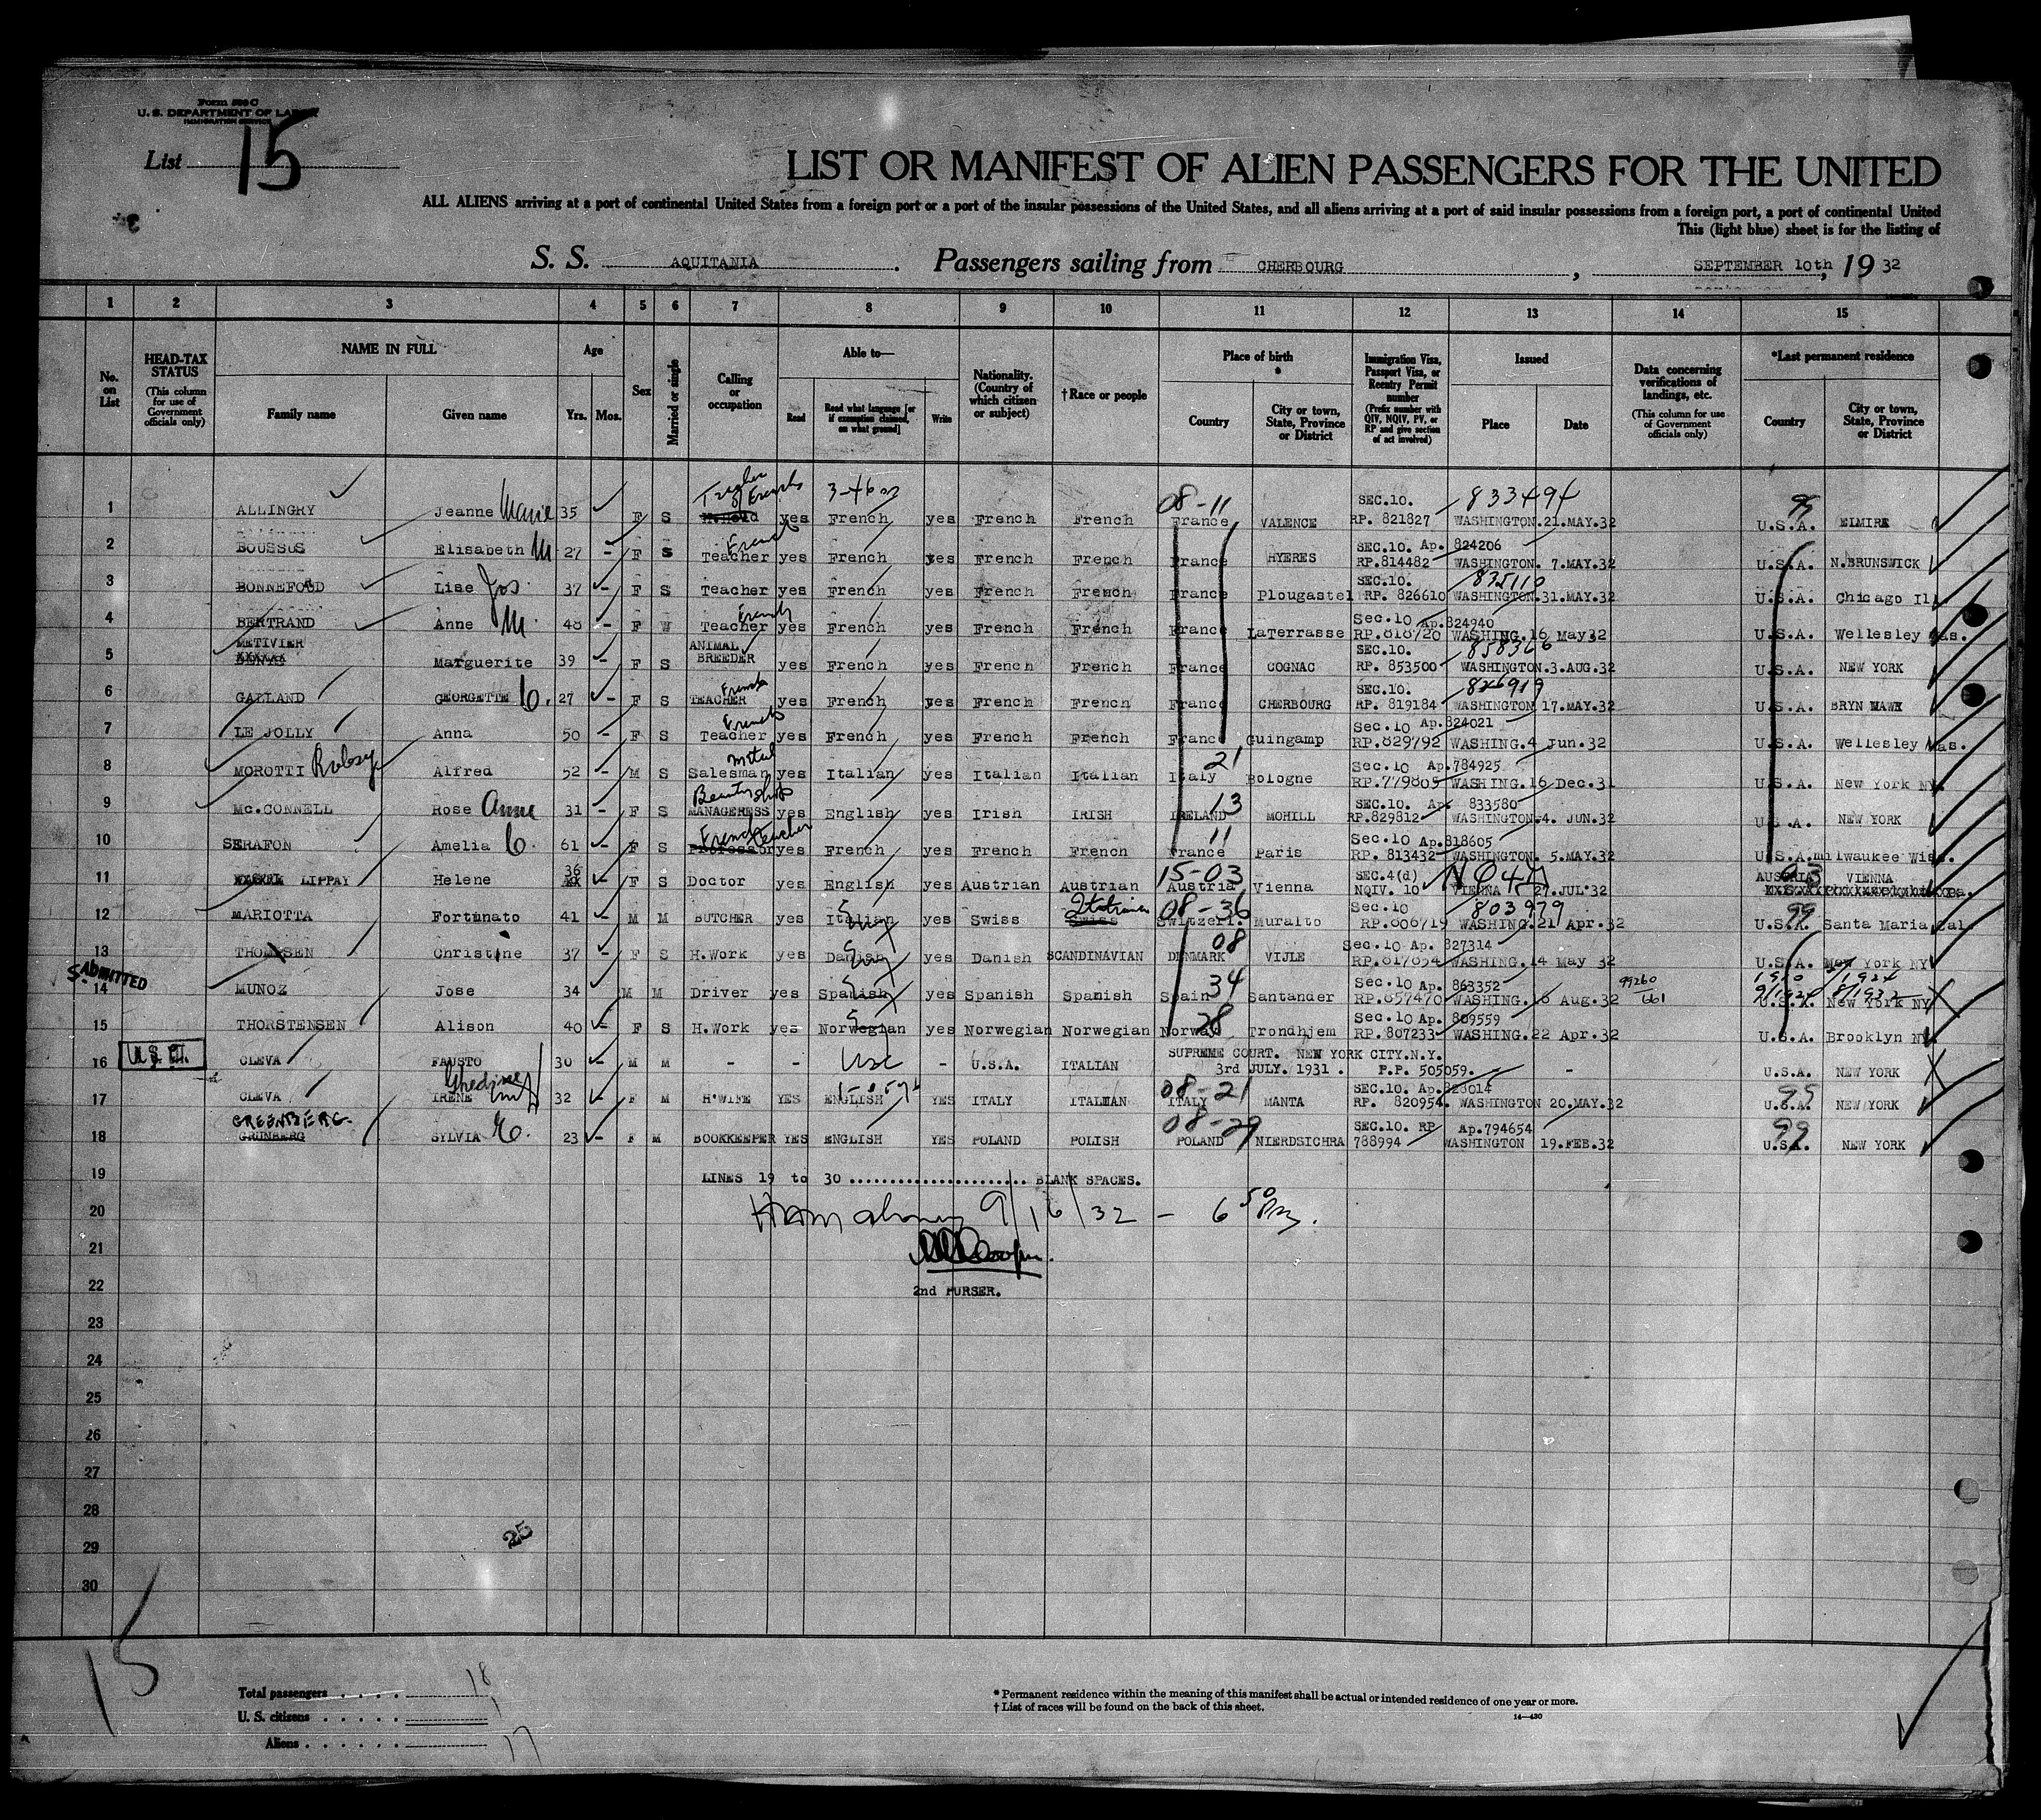 Form 500 C
U. S. DEPARTMENT OF LABOR
IMMIGRATION SERVICE
List 15
LIST OR MANIFEST OF ALIEN PASSENGERS FOR THE UNITED
ALL ALIENS arriving at a port of continental United States from a foreign port or a port of the insular possessions of the United States, and all aliens arriving at a port of said insular possessions from a foreign port, a port of continental United
This (light blue) sheet is for the listing of
S. S. AQUITANIA. Passengers sailing from CHERBOURG, SEPTEMBER 10th, 19 32
1 2 3 4 5 6 7 8 9 10 11 12 13 14 15
No. on List
HEAD-TAX STATUS (This column for use of Government officials only)
NAME IN FULL
Family name
Given name
Age
Yrs. Mos.
Sex
Married or single
Calling or occupation
Able to—
Read
Read what language [or if exemption claimed, on what ground]
Write
Nationality. (Country of which citizen or subject)
†Race or people
Place of birth *
Country
City or town, State, Province or District
Immigration Visa, Passport Visa, or Reentry Permit number (Prefix number with QIV, NQIV, PV, or RP and give section of act involved)
Issued
Place
Date
Data concerning verifications of landings, etc. (This column for use of Government officials only)
*Last permanent residence
Country
City or town, State, Province or District
1 ALLINGRY Jeanne Marie 35 F S Teacher of French yes French yes French French 08-11 France VALENCE SEC.10. RP. 821827 833494 WASHINGTON.21.MAY.32 U.S.A. ELMIRA
2 BOUSSUS Elisabeth M 27 - F S French Teacher yes French yes French French France HYERES SEC.10. Ap. 824206 RP.814482 WASHINGTON. 7.MAY.32 U.S.A. N.BRUNSWICK
3 BONNEFOND Lise Jos 37 - F S Teacher yes French yes French French France Plougastel SEC.10. RP. 826610 835110 WASHINGTON.31.MAY.32 U.S.A. Chicago Ill.
4 BERTRAND Anne M. 48 - F W French Teacher yes French yes French French France LaTerrasse Sec.10 Ap.824940 RP.818720 WASHING.16 May32 U.S.A. Wellesley Mas.
5 METIVIER Marguerite 39 - F S ANIMAL BREEDER yes French yes French French France COGNAC SEC.10. RP. 853500 858366 WASHINGTON.3.AUG.32 U.S.A. NEW YORK
6 GALLAND GEORGETTE C. 27 - F S French TEACHER yes French yes French French France CHERBOURG SEC.10. RP. 819184 826919 WASHINGTON 17.MAY.32 U.S.A. BRYN MAWR
7 LE JOLLY Anna 50 - F S French Teacher yes French yes French French France Guingamp Sec.10 Ap.824021 RP.829792 WASHING.4 Jun.32 U.S.A. Wellesley Mas.
8 MOROTTI Alfred 52 - M S Salesman yes Italian yes Italian Italian 21 Italy Bologne Sec.10 Ap.784925 RP.779805 WASHING.16 Dec.31 U.S.A. New York NY.
9 Mc.CONNELL Rose Anne 31 - F S Beauty shop MANAGERESS yes English yes Irish IRISH 13 IRELAND MOHILL SEC.10. Ap. 833580 RP.829812 WASHINGTON.4. JUN.32 U.S.A. NEW YORK
10 SERAFON Amelia C. 61 - F S French teacher Professor yes French yes French French 11 France Paris Sec.10 Ap.818605 RP. 813432 WASHINGTON. 5.MAY.32 U.S.A. milwaukee Wiss.
11 LIPPAY Helene 36 - F S Doctor yes English yes Austrian Austrian 15-03 Austria Vienna SEC.4(d) NQIV. 10 VIENNA 27.JUL'32 AUSTRIA VIENNA
12 MARIOTTA Fortunato 41 - M M BUTCHER yes Italian yes Swiss Italian Swiss 08-36 Switzerl. Muralto Sec.10 RP.806719 803979 WASHING.21 Apr.32 99 U.S.A. Santa Maria Cal.
13 THOMSEN Christine 37 - F S H.Work yes Danish Eng yes Danish SCANDINAVIAN 08 DENMARK VIJLE Sec.10 Ap. 827314 RP.817654 WASHING.14 May 32 U.S.A. New York NY
S. ADMITTED
14 MUNOZ Jose 34 M M Driver yes Spanish yes Spanish Spanish 34 Spain Santander Sec.10 Ap. 863352 RP.857470 WASHING. 18 Aug.32 99260/661 U.S.A. New York NY
15 THORSTENSEN Alison 40 - F S H.Work yes Norwegian yes Norwegian Norwegian 28 Norway Trondhjem Sec.10 Ap. 809559 RP.807233 WASHING.22 Apr.32 U.S.A. Brooklyn NY.
16 CLEVA FAUSTO 30 - M M - - USC - U.S.A. ITALIAN SUPREME COURT. NEW YORK CITY.N.Y. 3rd JULY. 1931. P.P. 505059. - U.S.A. NEW YORK
17 CLEVA IRENE 32 - F M H.WIFE YES ENGLISH YES ITALY ITALIAN 08-21 ITALY MANTA SEC.10. Ap.828014 RP. 820954. WASHINGTON 20.MAY.32 U.S.A. NEW YORK
18 GREENBERG GRUNBERG SYLVIA E. 23 - F M BOOKKEEPER YES ENGLISH YES POLAND POLISH 08-29 POLAND NIERDSICHRA SEC.10. RP Ap.794654 788994 WASHINGTON 19.FEB.32 99 U.S.A. NEW YORK
19 LINES 19 to 30 .......................... BLANK SPACES.
20 9/16/32 - 6 50 PM.
21
22 2nd PURSER.
23
24
25
26
27
28
29 25
30
15
Total passengers . . . . 18
U. S. citizens . . . . . 1
Aliens . . . . . . 17
* Permanent residence within the meaning of this manifest shall be actual or intended residence of one year or more.
† List of races will be found on the back of this sheet.
14—430